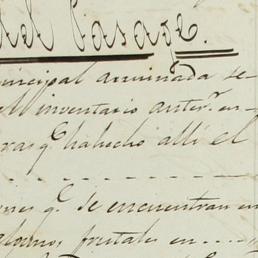 del Pasage.
nicipal arruinada se
el inventario anter.r en
ras q.e ha hecho alli el
nes q.e se encuentran en
frutales en